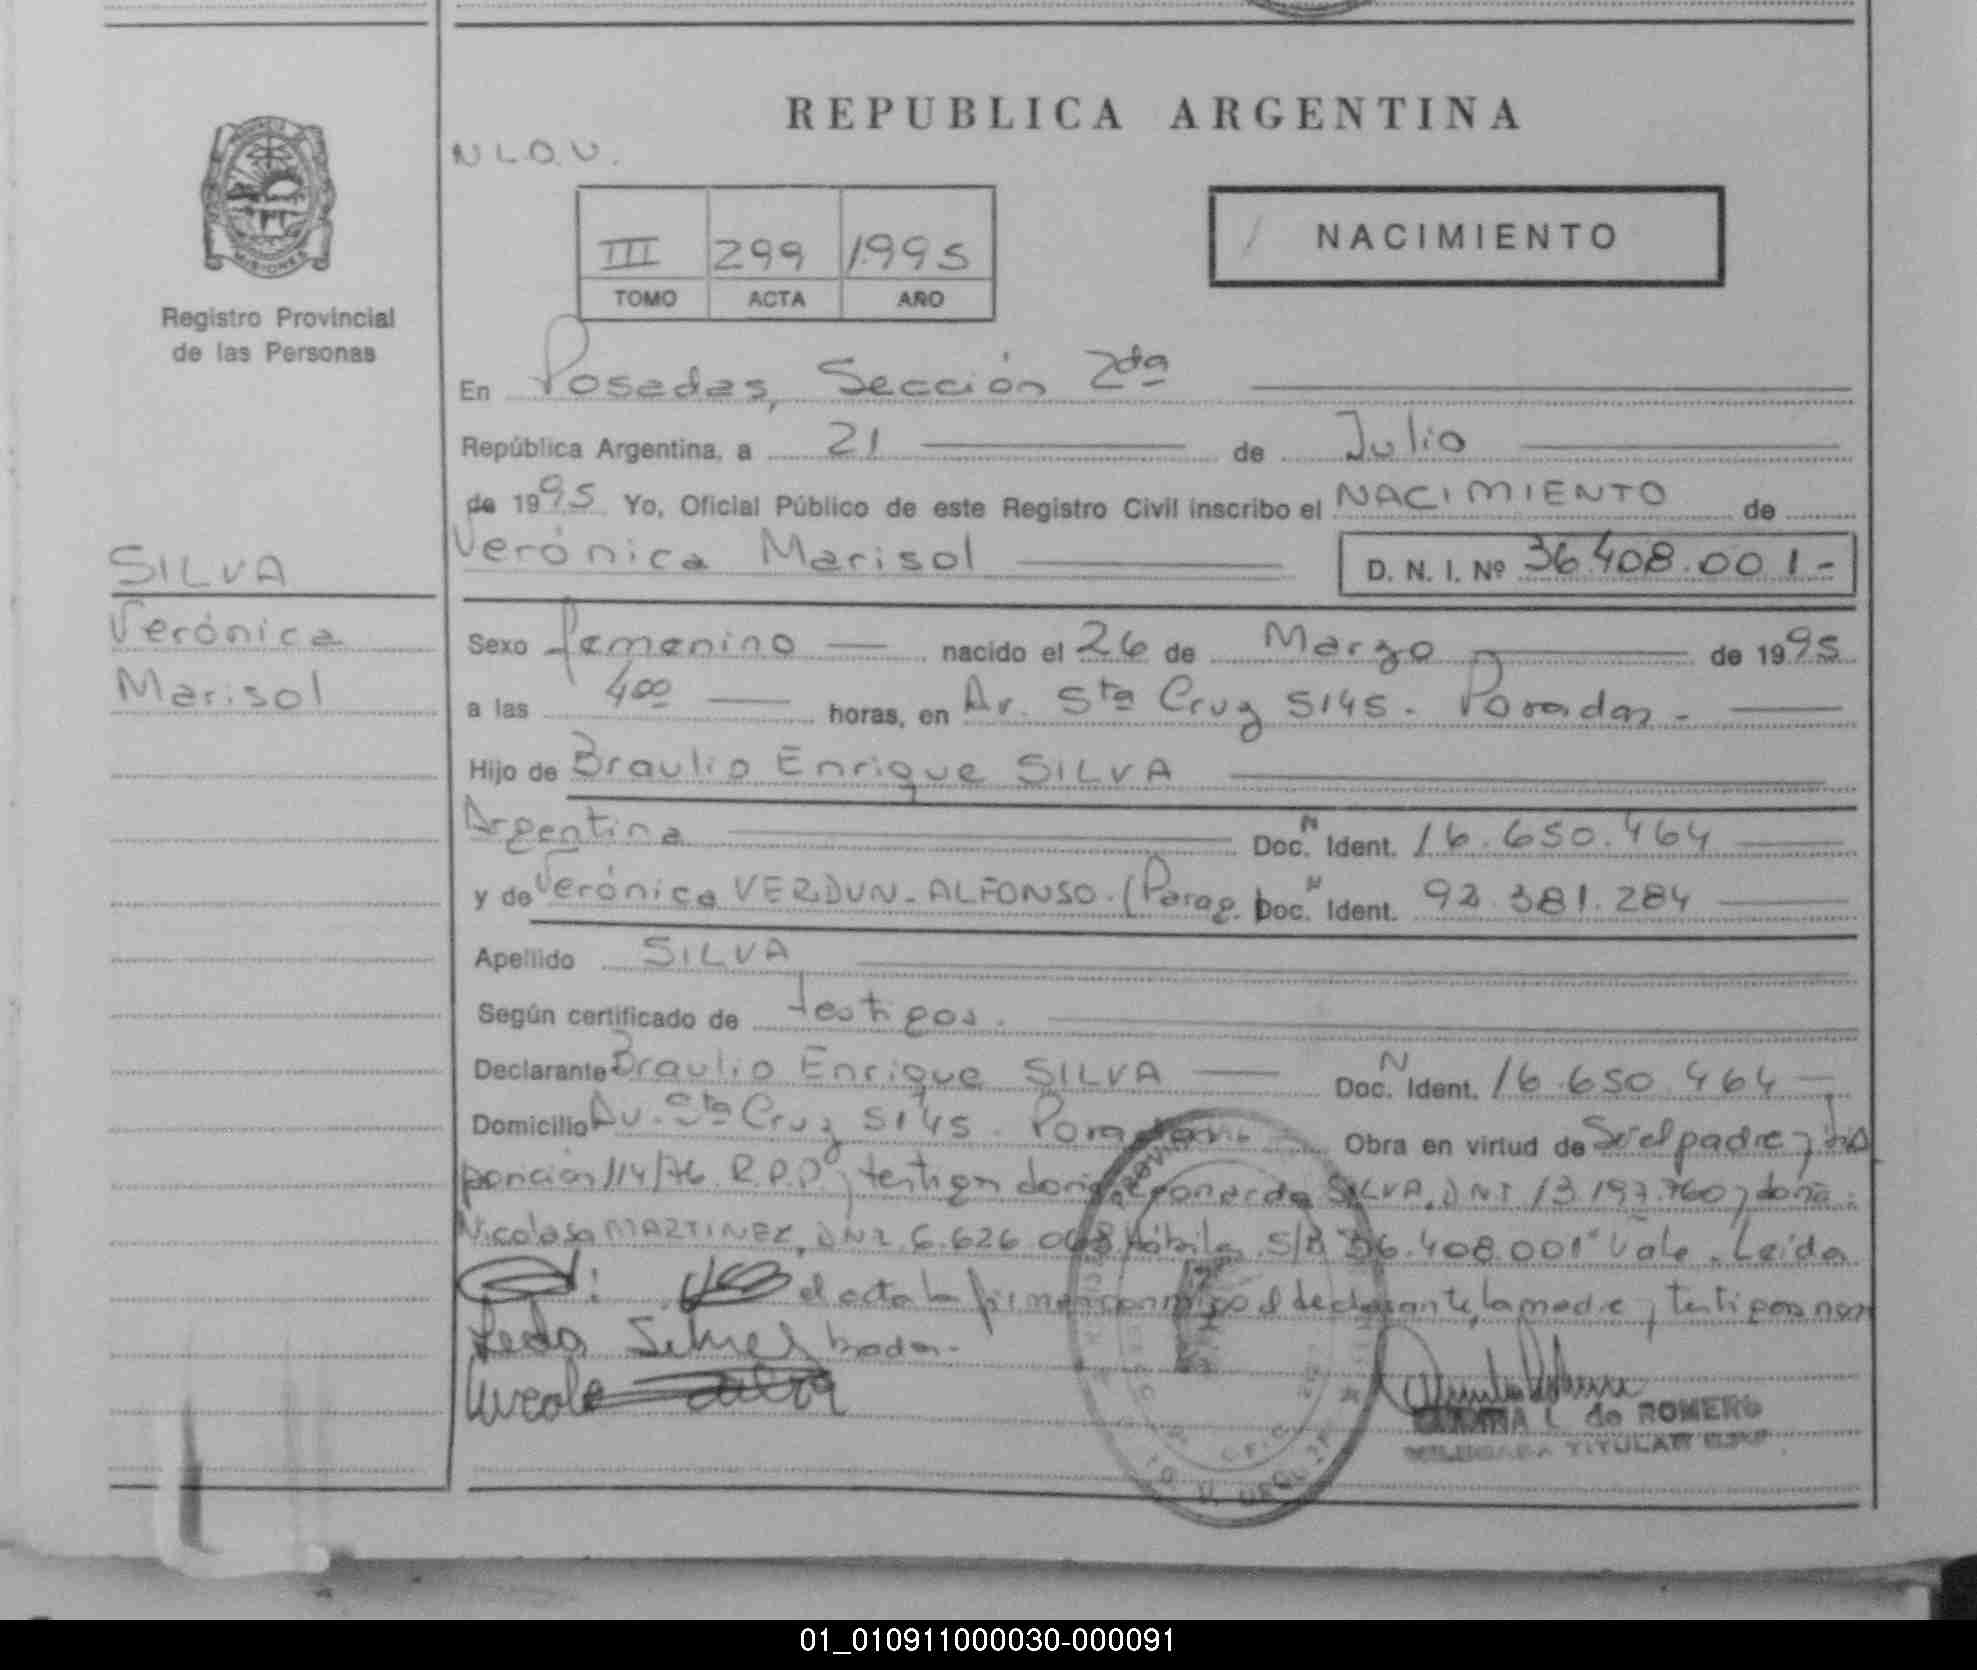 REPUBLICA ARGENTINA
N L.O.V.
MISIONES
Registro Provincial
de las Personas
III 299 1995
TOMO ACTA AÑO
NACIMIENTO
En Posadas, Sección 2da
República Argentina, a 21 de Julio
de 1995 Yo, Oficial Público de este Registro Civil inscribo el NACIMIENTO de
Verónica Marisol D. N. I. Nº 36.408.001-
SILVA
Verónica
Marisol
Sexo femenino nacido el 26 de Marzo de 1995
a las 4oo horas, en Av. Sta Cruz 5145. Posadas-
Hijo de Braulio Enrique SILVA
Argentina Doc. N Ident. 16.650.464
y de Verónica VERDUN-ALFONSO. (Parag. Doc. N Ident. 92.381.284
Apellido SILVA
Según certificado de testigos.
Declarante Braulio Enrique SILVA Doc. N Ident. 16.650.464
Domicilio Av. Sta Cruz 5145. Posadas Obra en virtud de Ser el padre y dis
posición 114/76 R.P.P. testigos SILVA, DNI 13.197.760 y doña
Nicolasa MARTINEZ, DNI 6.626.008 hábiles S/B "36.408.001" Vale. Leída
el acta la firman conmigo el declarante, la madre y testigos nom
brados.-
L. de ROMERO
TITULAR
01_010911000030-000091